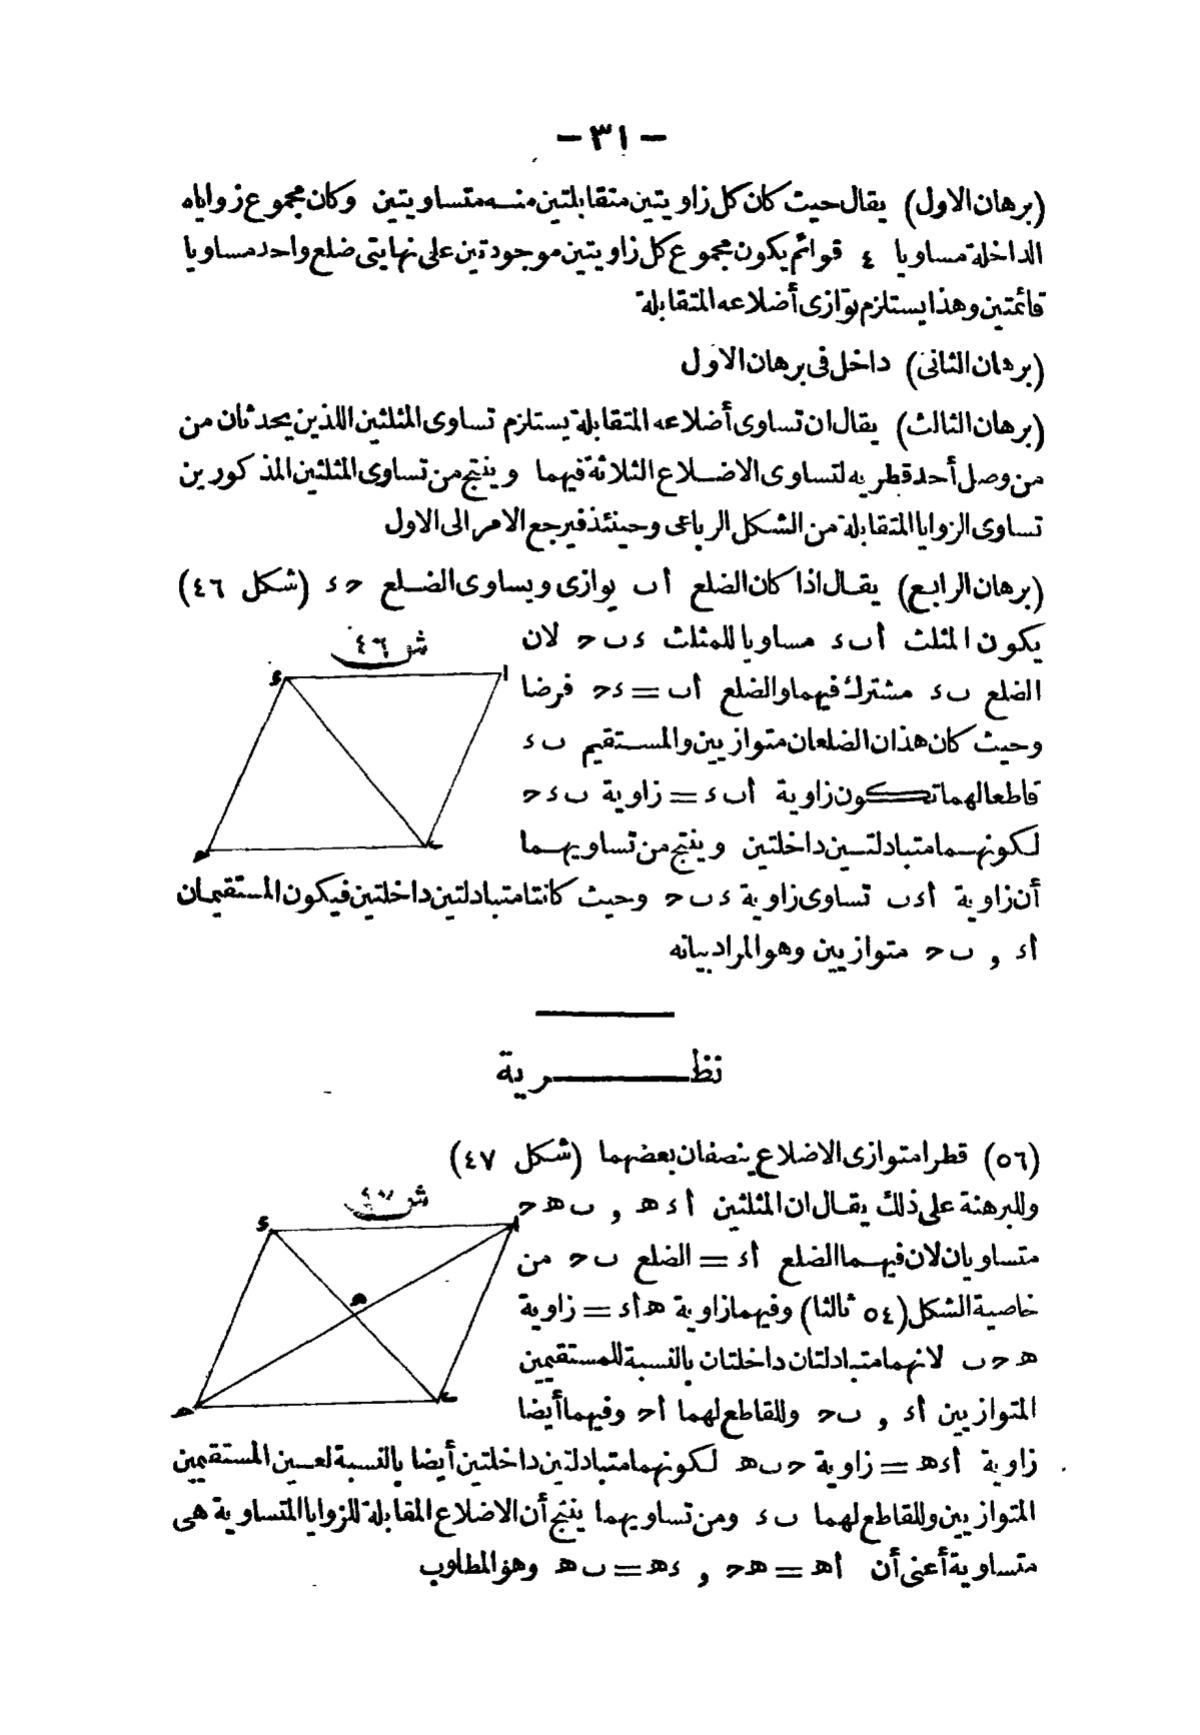 — ٣١ —
(برهان الاول) يقال حيث كان كل زاويتين متقابلتين منه متساويتين وكان مجموع زواياه
الداخلة مساويا ٤ قوائم يكون مجموع كل زاويتين موجودتين على نهايتى ضلع واحد مساويا
قائمتين وهذا يستلزم توازى أضلاعه المتقابلة
(برهان الثانى) داخل فى برهان الاول
(برهان الثالث) يقال ان تساوى أضلاعه المتقابلة يستلزم تساوى المثلثين اللذين يحدثان من
من وصل أحد قطريه لتساوى الاضلاع الثلاثة فيهما وينتج من تساوى المثلثين المذكورين
تساوى الزوايا المتقابلة من الشكل الرباعى وحينئذ فيرجع الامر الى الاول
(برهان الرابع) يقال اذا كان الضلع أٮ يوازى ويساوى الضلع حء (شكل ٤٦)
يكون المثلث أٮء مساويا للمثلث ءٮح لان
الضلع ٮء مشترك فيهما والضلع أٮ = ءح فرضا
وحيث كان هذان الضلعان متوازيين والمستقيم ٮء
قاطعا لهما تكون زاوية أٮء = زاوية ٮءح
لكونهما متبادلتين داخلتين وينتج من تساويهما
أن زاوية أءٮ تساوى زاوية ءٮح وحيث كانتا متبادلتين داخلتين فيكون المستقيمان
أء و ٮح متوازيين وهو المراد بيانه
ش ٤٦
ء
ا
ح
ٮ
نظرية
(٥٦) قطرا متوازى الاضلاع ينصفان بعضهما (شكل ٤٧)
وللبرهنة على ذلك يقال ان المثلثين أءھ و ٮھح
متساويان لان فيهما الضلع أء = الضلع ٮح من
خاصية الشكل (٥٤ ثالثا) وفيهما زاوية ھأء = زاوية
ھحٮ لانهما متبادلتان داخلتان بالنسبة للمستقيمين
المتوازيين أء و ٮح وللقاطع لهما أح وفيهما أيضا
زاوية أءھ = زاوية حٮھ لكونهما متبادلتين داخلتين أيضا بالنسبة لعين المستقيمين
المتوازيين وللقاطع لهما ٮء ومن تساويهما ينتج أن الاضلاع المقابلة للزوايا المتساوية هى
متساوية أعنى أن أھ = ھح و ءھ = ٮھ وهو المطلوب
ش ٤٧
ء
ا
ھ
ح
ٮ